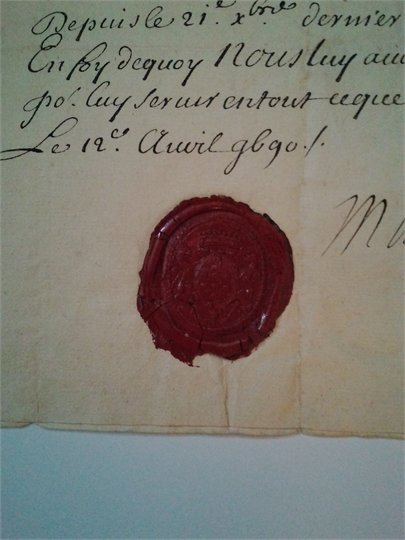 Depuis le 21.e xbre dernier
En foy dequoy Nous luy avi
po.r luy servir en tout ce que
Le 12.e Avril gb90 /.
M